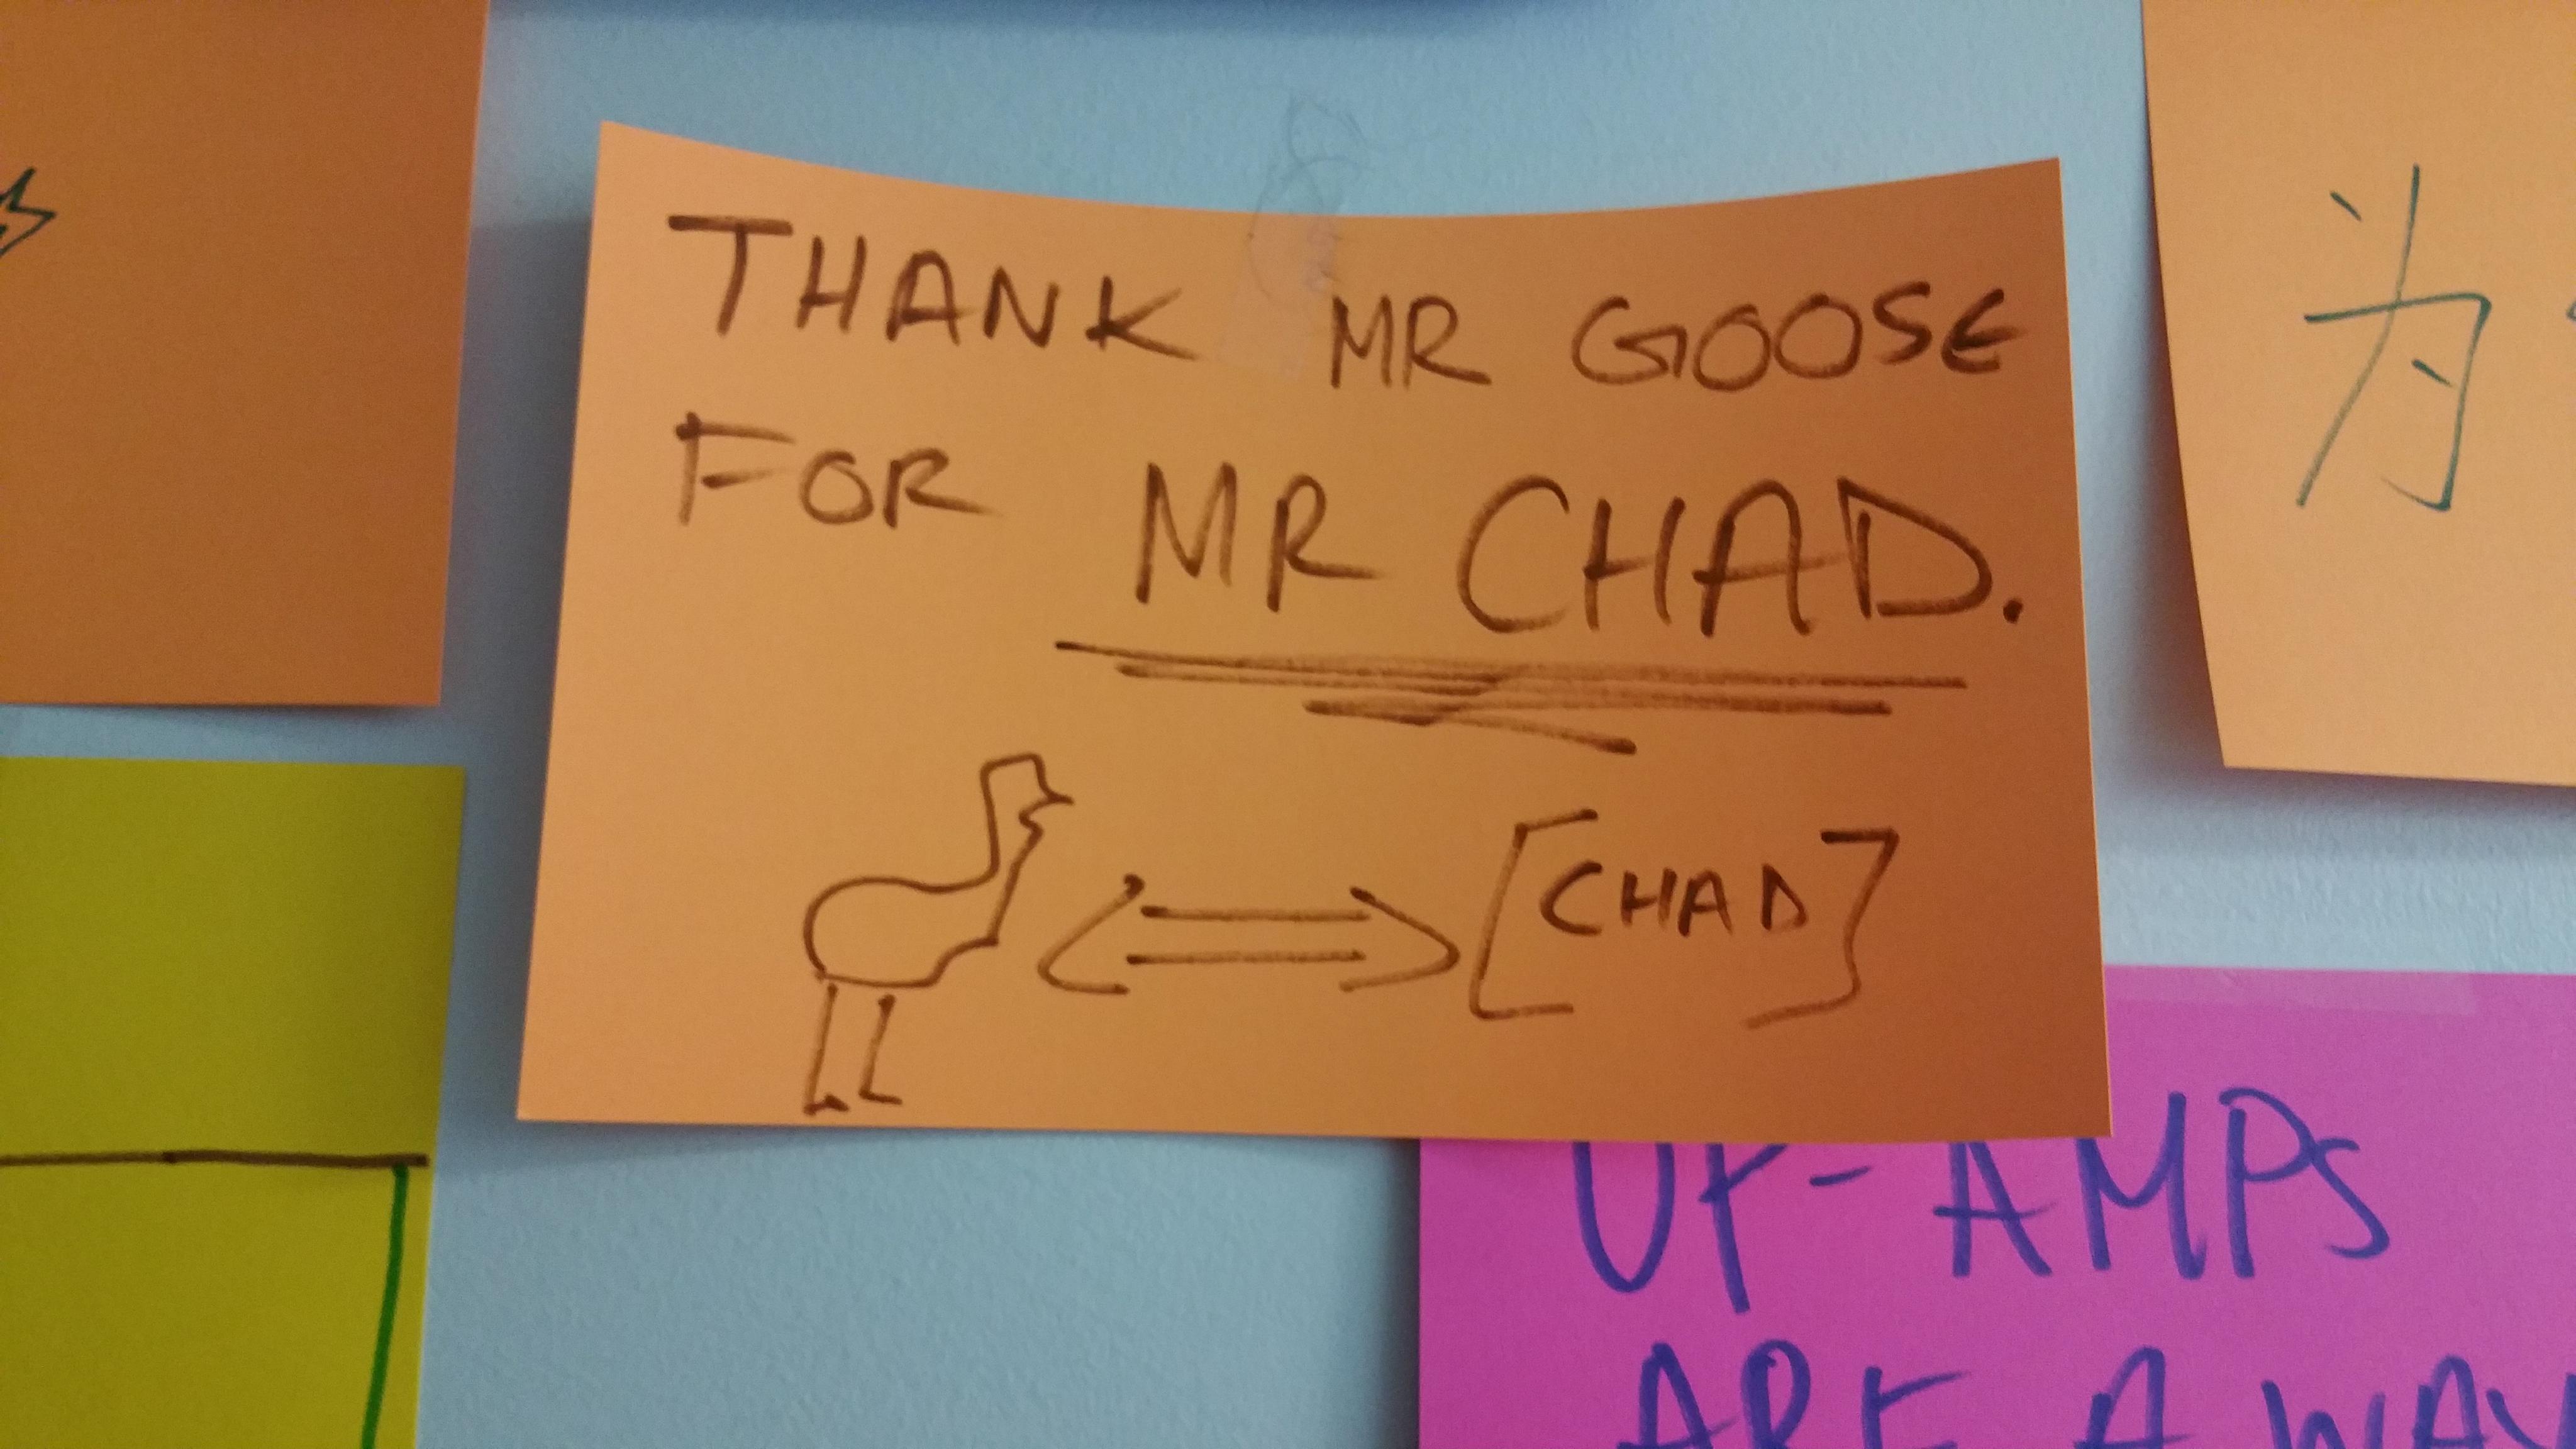 THANK MR GOOSE
FOR MR CHAD.
[CHAD]
为
OP-AMPS
ARE A WAY